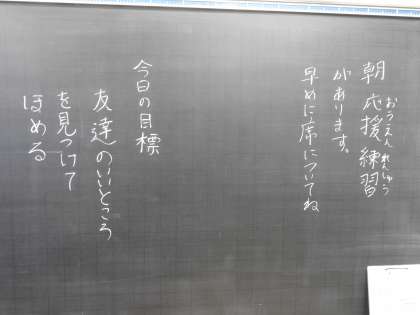 朝応援練習
おうえんれんしゅう
があります。
早めに席についてね
今日の目標
友達のいいところ
を見つけて
ほめる